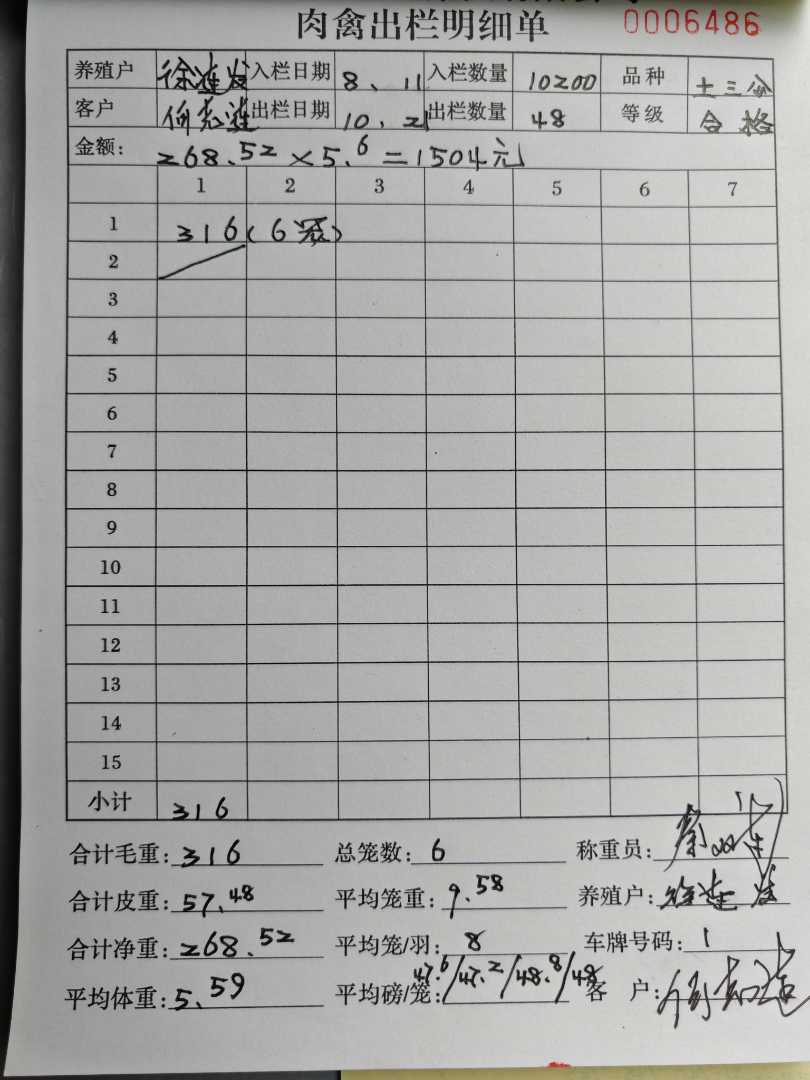 肉禽出栏明细单 0006486
养殖户 徐连发 入栏日期 8、11 入栏数量 10200 品种 土三
客户 出栏日期 10、21 出栏数量 48 等级 合格
金额: 268.52×5.6=1504元
1 2 3 4 5 6 7
1 316(6笼)
2
3
4
5
6
7
8
9
10
11
12
13
14
15
小计 316
合计毛重: 316 总笼数: 6 称重员:
合计皮重: 57.48 平均笼重: 9.58 养殖户: 徐连发
合计净重: 268.52 平均笼/羽: 8 车牌号码: 1
平均体重: 5.59 平均磅/笼: 47.6/47.2/48.8/48 客 户: